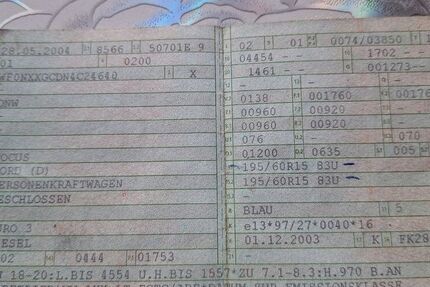 28.05.2004 8566 50701E 9
01 0200
WF0NXXGCDN4C24640 X
DNW
OCUS
ORD (D)
PERSONENKRAFTWAGEN
ESCHLOSSEN
URO 3
ESEL
02 0444 01753
02 01 0074/03850
04454 - - 1702 - -
1461 - - 001273--
-
0138 001760 00176
00960 00920
00960 00920
076 - - 070
01200 0635 005
195/60R15 83U
195/60R15 83U
-
BLAU 5
e13*97/27*0040*16
01.12.2003 K FK28
18-20:L.BIS 4554 U.H.BIS 1557*ZU 7.1-8.3:H.970 B.AN